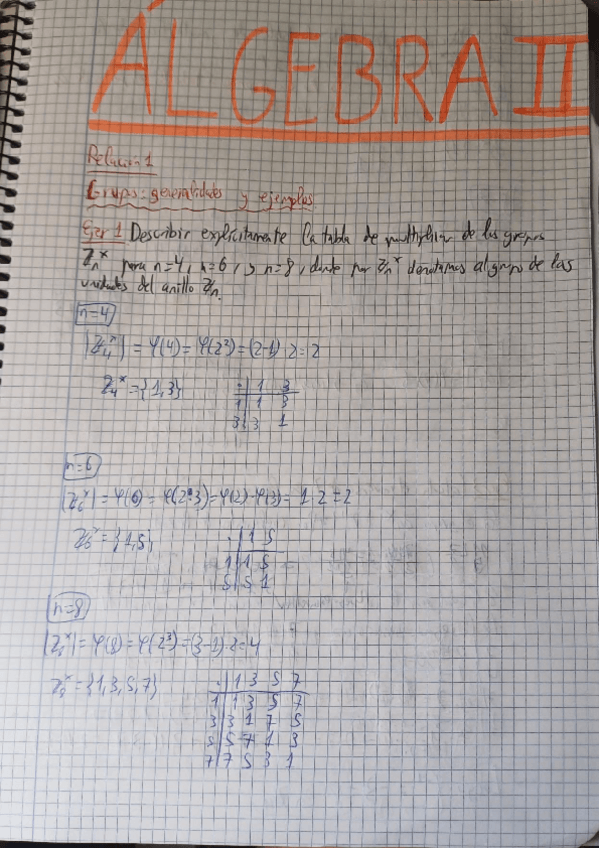 ÁLGEBRA II
Relacion 1
Grupos: generalidades y ejemplos
Ejer 1 Describir explícitamente la tabla de multiplicar de los grupos
ℤₙˣ para n=4, n=6, y n=8, donde por ℤₙˣ denotamos al grupo de las
unidades del anillo ℤₙ.
n=4
|ℤ₄ˣ| = φ(4) = φ(2²) = (2-1)·2 = 2
ℤ₄ˣ = {1,3}
· 1 3
1 1 3
3 3 1
n=6
|ℤ₆ˣ| = φ(6) = φ(2·3) = φ(2)·φ(3) = 1·2 = 2
ℤ₆ˣ = {1,5}
· 1 5
1 1 5
5 5 1
n=8
|ℤ₈ˣ| = φ(8) = φ(2³) = (3-1)·2 = 4
ℤ₈ˣ = {1,3,5,7}
· 1 3 5 7
1 1 3 5 7
3 3 1 7 5
5 5 7 1 3
7 7 5 3 1